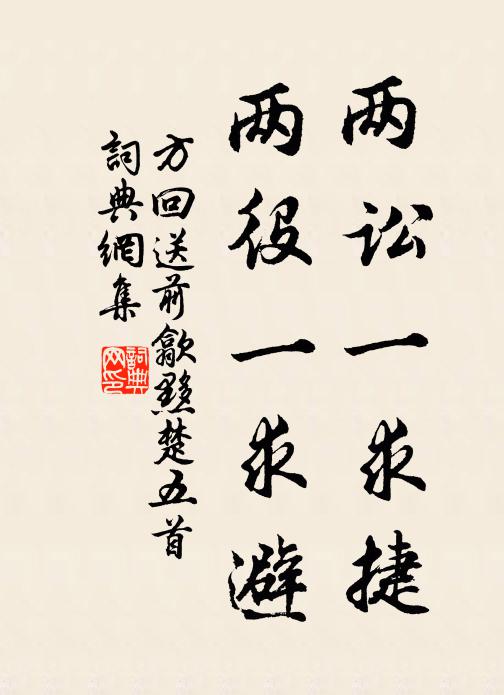 两讼一求捷
两役一求避
方回送前歙黟楚五首
詞典網集
詞典网印